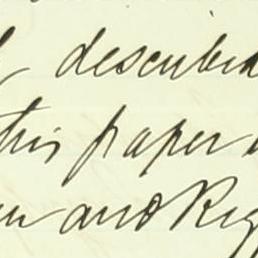 described
this paper
and Reg